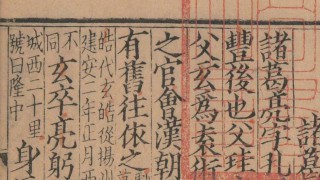 諸葛
諸葛亮字孔
豐後也父珪
父玄為袁術
之官會漢朝
有舊往依之
皓代玄皓從揚州
建安二年正月西
不同玄卒亮躬
城西二十里
號曰隆中
身